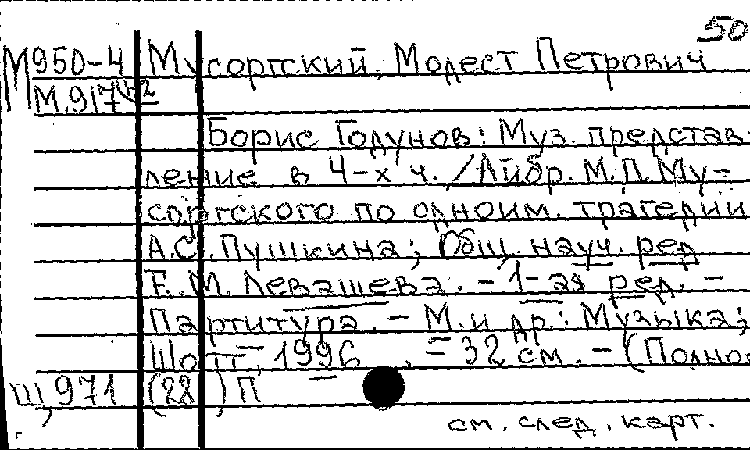 50
М950-4 Мусоргский, Модест Петрович
М.917
Борис Годунов: Муз. представ-
ление в 4-х ч. / Либр. М.П. Му-
соргского по одноим. трагедии
А.С. Пушкина; Общ. науч. ред
Е.М. Левашева. – 1-ая ред. –
Партитура. – М. и др.: Музыка;
Шотт, 1996. – 32 см. – (Полное
Щ,971 (28) П
см. след. карт.